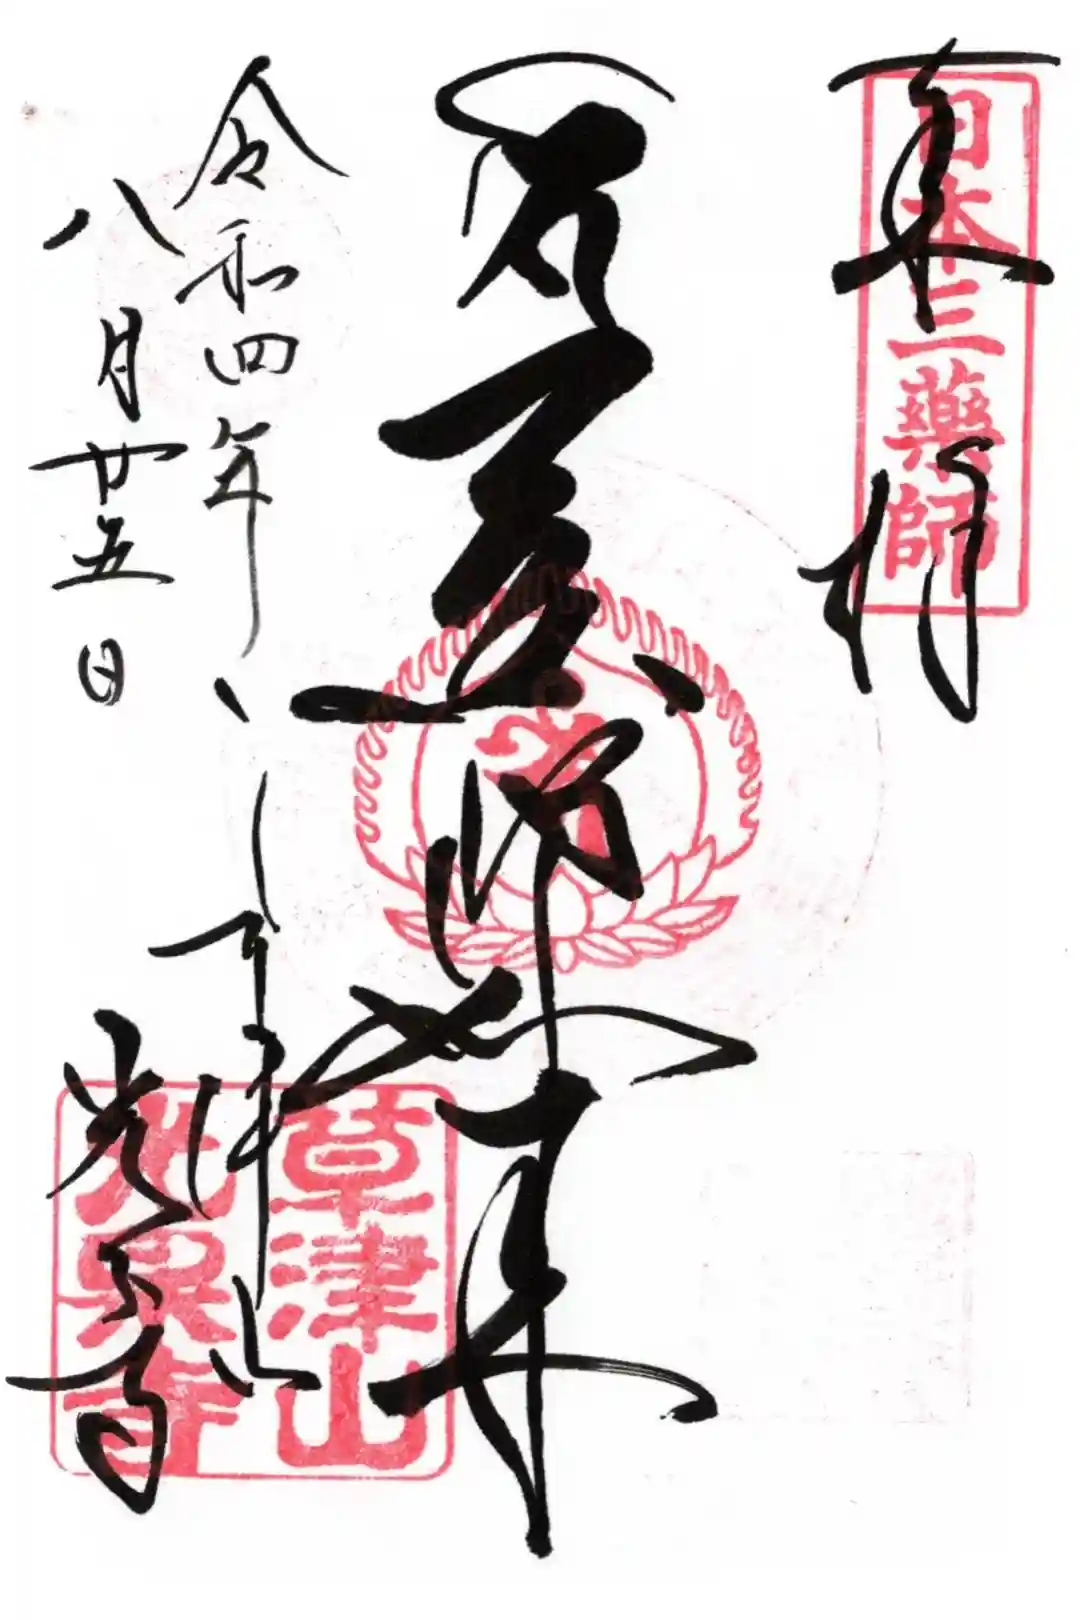 奉拝
日本三薬師
薬師如来
令和四年
八月廿五日
草津山
光泉寺
草津山
光泉寺